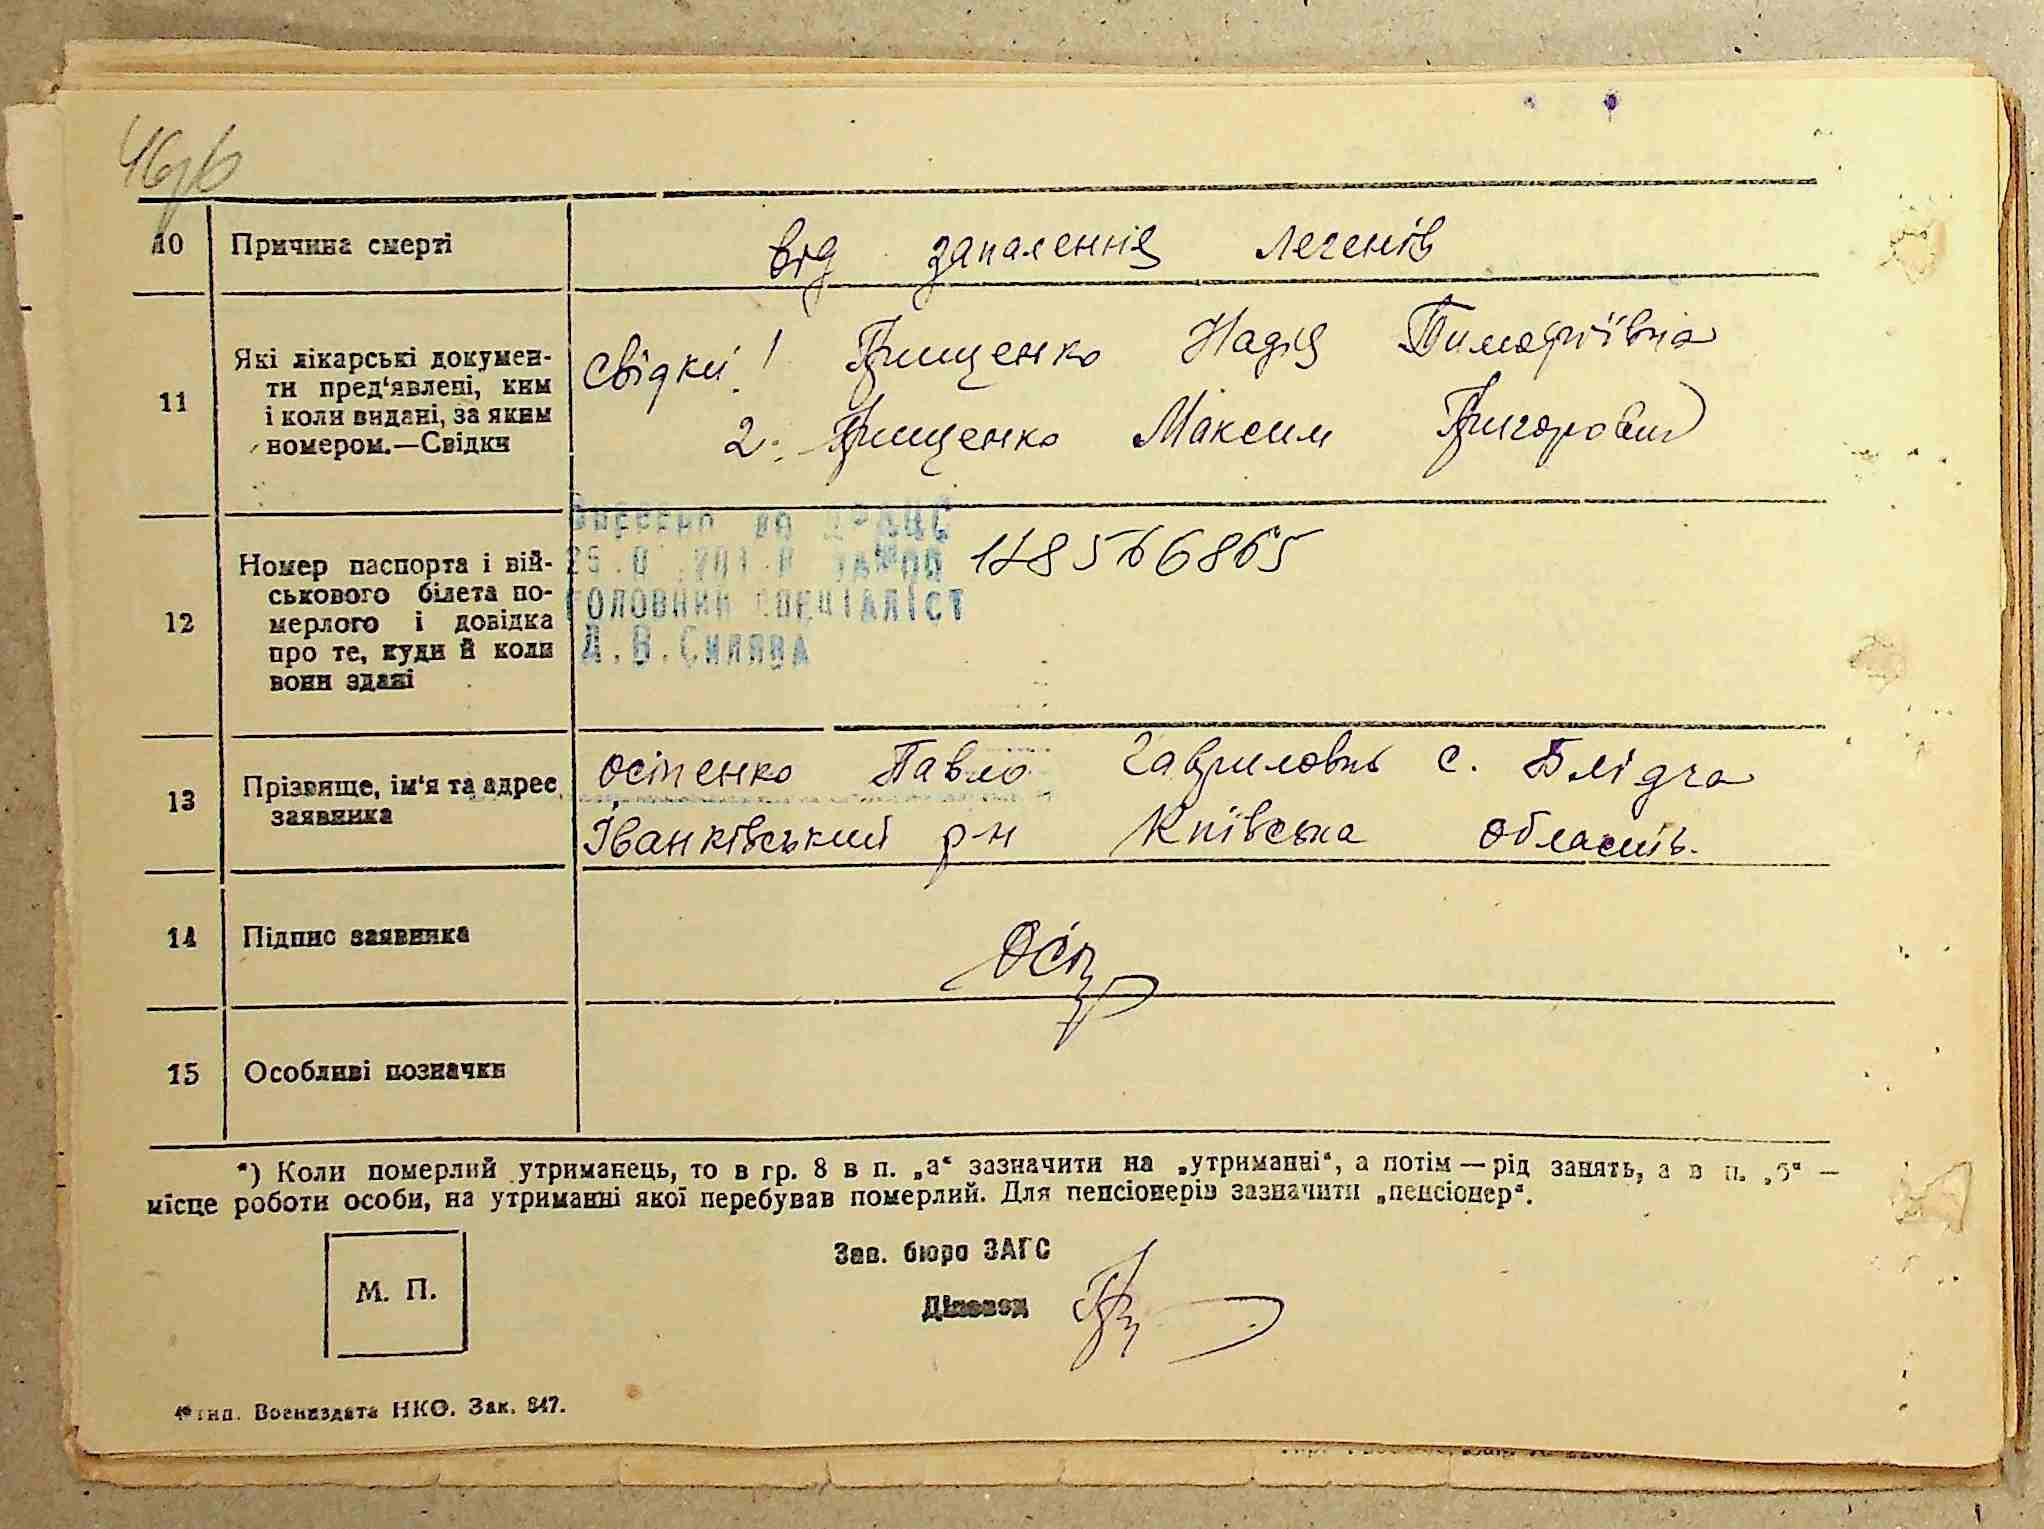 10 Причина смерті від запалення легенів
11 Які лікарські докумен-
ти пред'явлені, ким
і коли видані, за яким
номером.—Свідки
свідки 1 Грищенко Надія Тимофіївна
2. Грищенко Максим Григорович
12 Номер паспорта і вій-
ськового білета по-
мерлого і довідка
про те, куди й коли
вони здані
Внесено до ДРАЦС
головний спеціаліст
178566865
13 Прізвище, ім'я та адрес
заявника
Осіпенко Павло Гаврилович с. Блідча
Іванківський р-н Київська область.
14 Підпис заявника Осіп
15 Особливі позначки
*) Коли померлий утриманець, то в гр. 8 в п. „а“ зазначити на „утриманні“, а потім — рід занять, а в п. „б“ —
місце роботи особи, на утриманні якої перебував померлий. Для пенсіонерів зазначити „пенсіонер“.
М. П.
Зав. бюро ЗАГС
Діловод
тип. Воениздата НКО. Зак. 847.